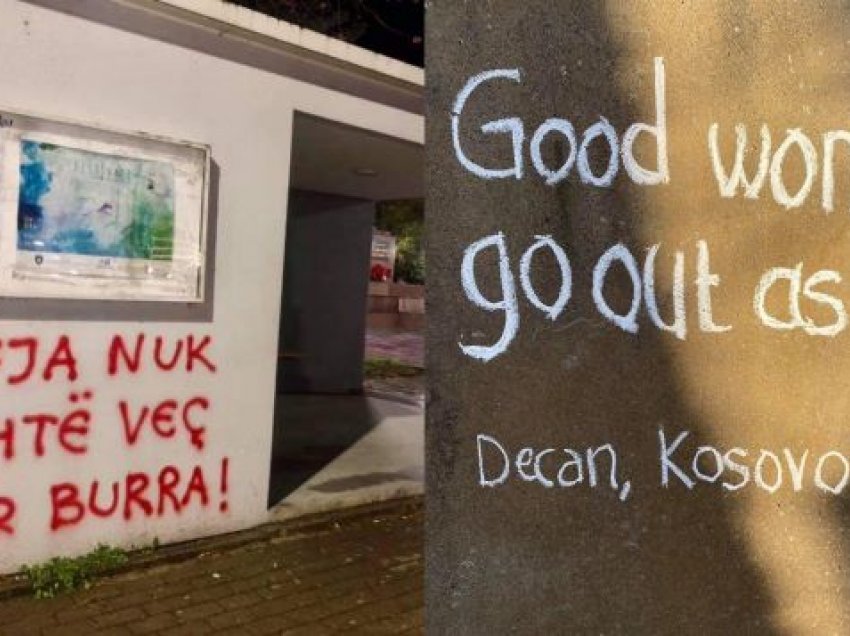 JA NUK
HTË VEÇ
R BURRA!
Good wor
go out as
Decan, Kosovo